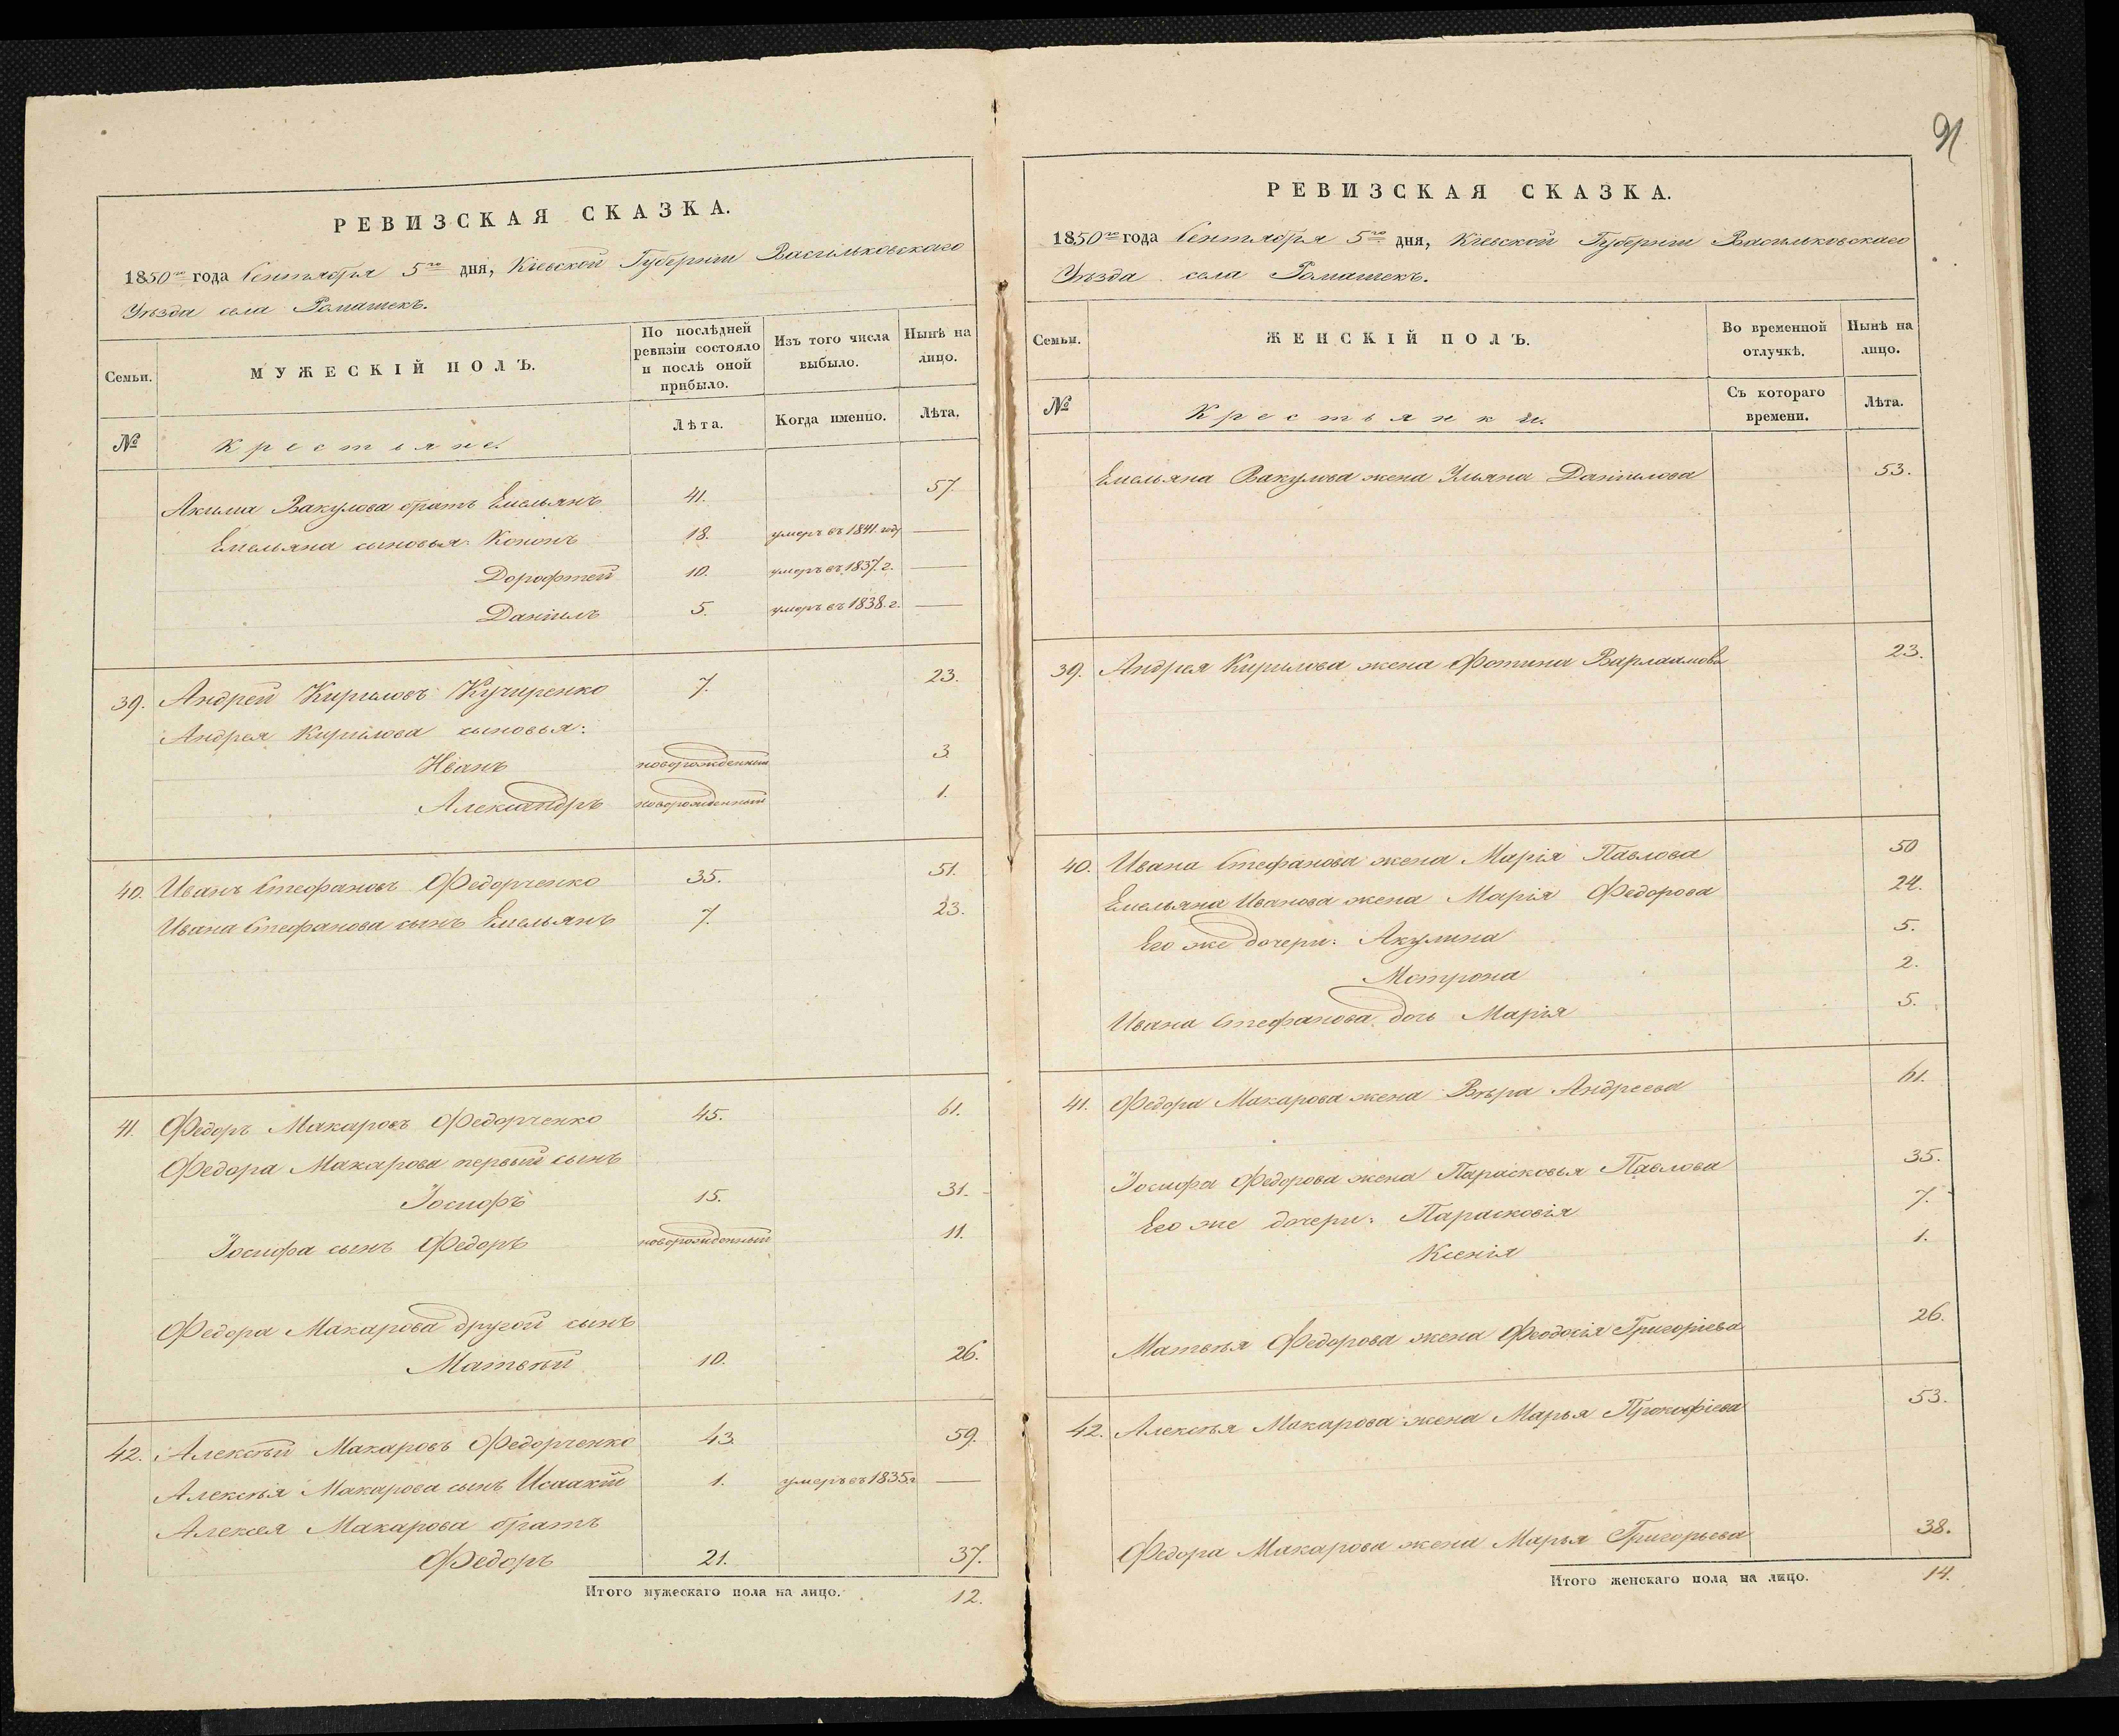 91
РЕВИЗСКАЯ СКАЗКА.
1850го года Сентября 5го дня, Кіевской Губерніи Васильковскаго
Уѣзда села Ромашекъ.
Семьи.
МУЖЕСКІЙ ПОЛЪ.
По послѣдней ревизіи состояло и послѣ оной прибыло.
Изъ того числа выбыло.
Нынѣ на лицо.
№
Крестьяне.
Лѣта.
Когда именно.
Лѣта.
Акима Вакулова братъ Емельянъ 41. 57.
Емельяна сыновья: Кононъ 18. умеръ въ 1841 году —
Дорофтей 10. умеръ въ 1837. г. —
Даніилъ 5. умеръ въ 1838. г. —
39. Андрей Кириловъ Кучиренко 7. 23.
Андрея Кирилова сыновья:
Иванъ новорожденный 3
Александръ новорожденный 1.
40. Иванъ Стефановъ Федорченко 35. 51.
Ивана Стефанова сынъ Емельянъ 7. 23.
41. Федоръ Макаровъ Федорченко 45. 61.
Федора Макарова первый сынъ
Іосифъ 15. 31.
Іосифа сынъ Федоръ новорожденный 11.
Федора Макарова другой сынъ
Матвѣй 10. 26.
42. Алексѣй Макаровъ Федорченко 43. 59.
Алексѣя Макарова сынъ Исаакій 1. умеръ въ 1835г. —
Алексея Макарова братъ
Федоръ 21. 37.
Итого мужескаго пола на лицо. 12.
РЕВИЗСКАЯ СКАЗКА.
1850го года Сентября 5го дня, Кіевской Губерніи Васильковскаго
Уѣзда села Ромашекъ.
Семьи.
ЖЕНСКІЙ ПОЛЪ.
Во временной отлучкѣ.
Нынѣ на лицо.
№
Крестьянки.
Съ котораго времени.
Лѣта.
Емельяна Вакулова жена Ульяна Даніилова 53.
39. Андрея Кирилова жена Фотина Варлаамова 23.
40. Ивана Стефанова жена Марія Павлова 50
Емельяна Иванова жена Марія Федорова 24.
Его же дочери: Акулина 5.
Мотрона 2.
Ивана Стефанова дочь Марія 5.
41. Федора Макарова жена Вѣра Андреева 61.
Іосифа Федорова жена Парасковья Павлова 35.
Его же дочери: Парасковія 7.
Ксенія 1.
Матвѣя Федорова жена Феодосія Григоріева 26.
42. Алексѣя Макарова жена Марья Прокофіева 53.
Федора Макарова жена Марья Григорьева 38.
Итого женскаго пола на лицо. 14.